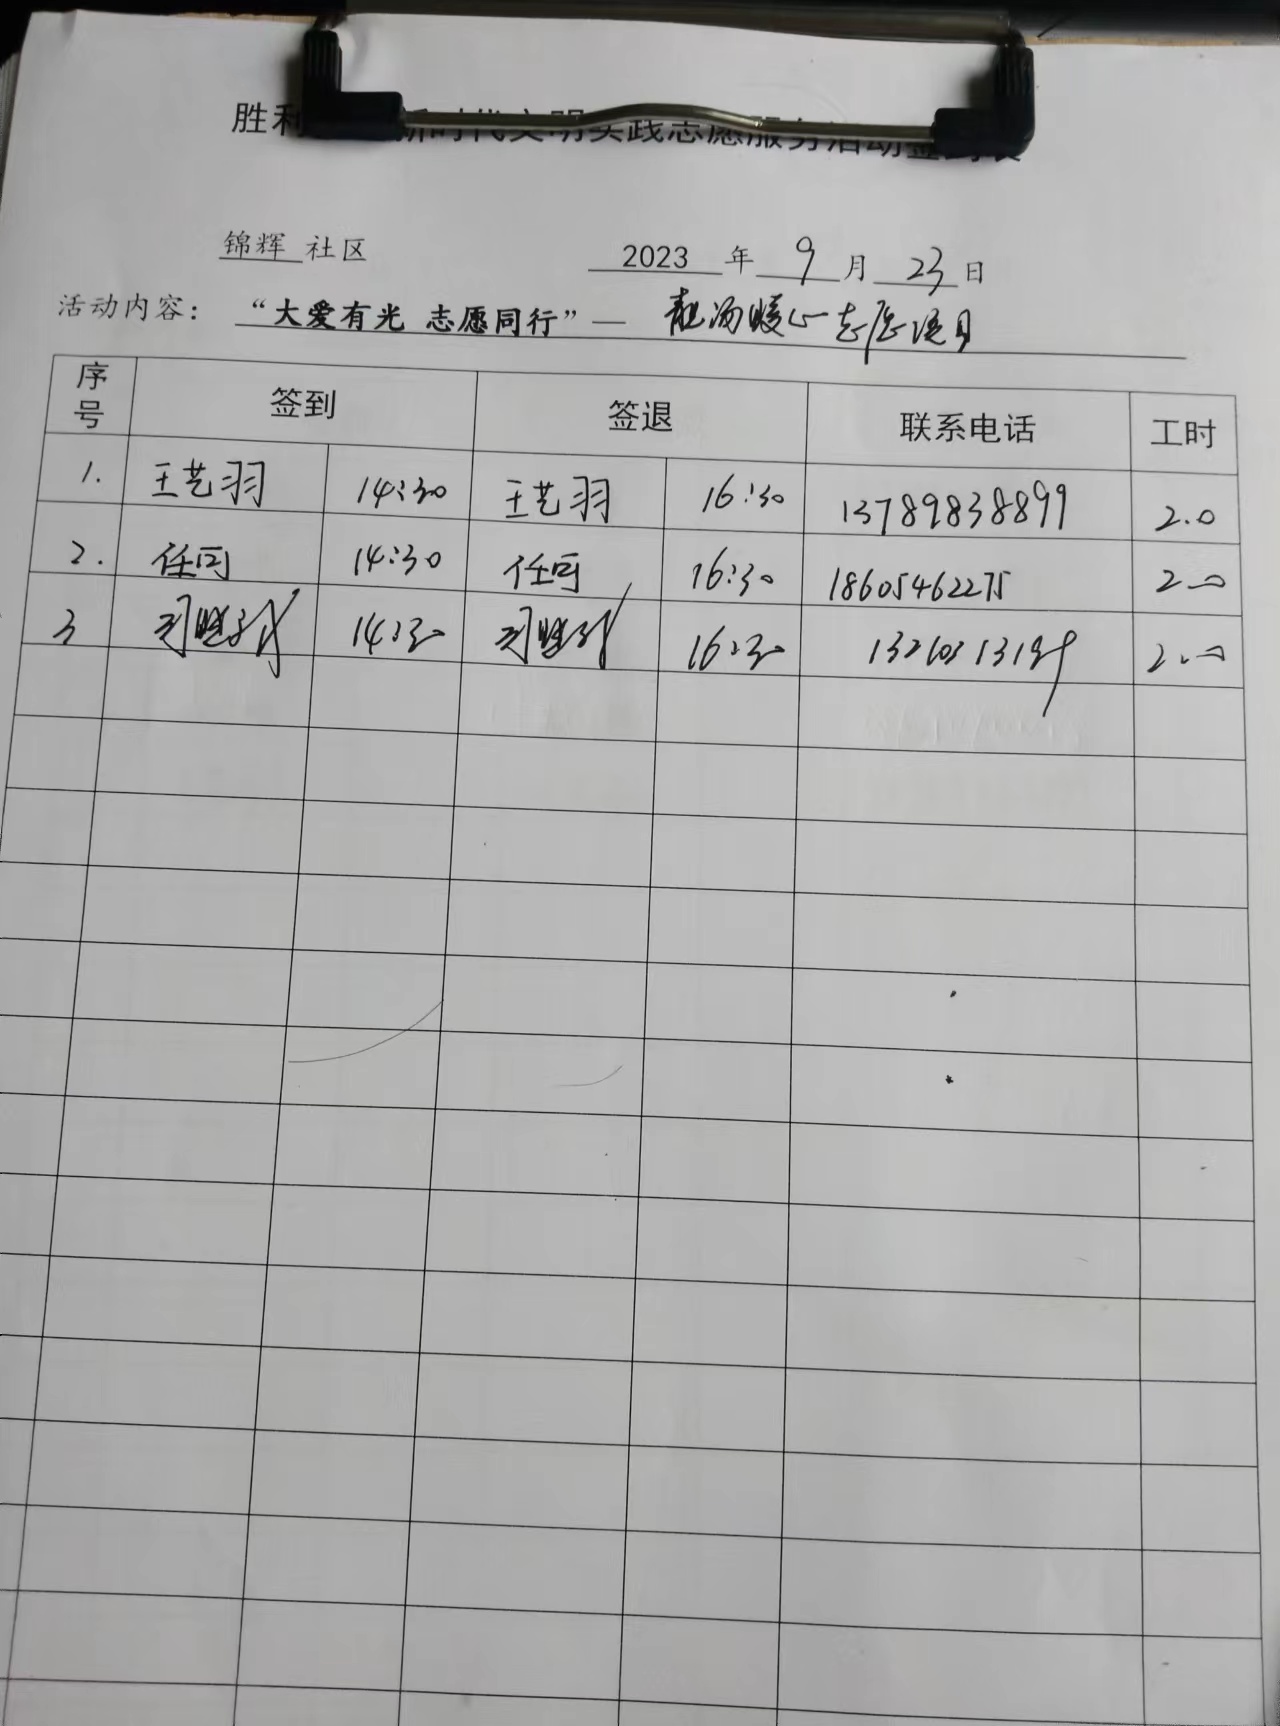 胜利 新时代文明实践志愿服务活动签到表
锦辉 社区 2023 年 9 月 23 日
活动内容： “大爱有光 志愿同行”— 靓汤暖心志愿项目
序号 签到 签退 联系电话 工时
1. 王艺羽 14:30 王艺羽 16:30 13789838899 2.0
2. 任可 14:30 任可 16:30 18605462275 2.0
3 14:30 16:30 2.0